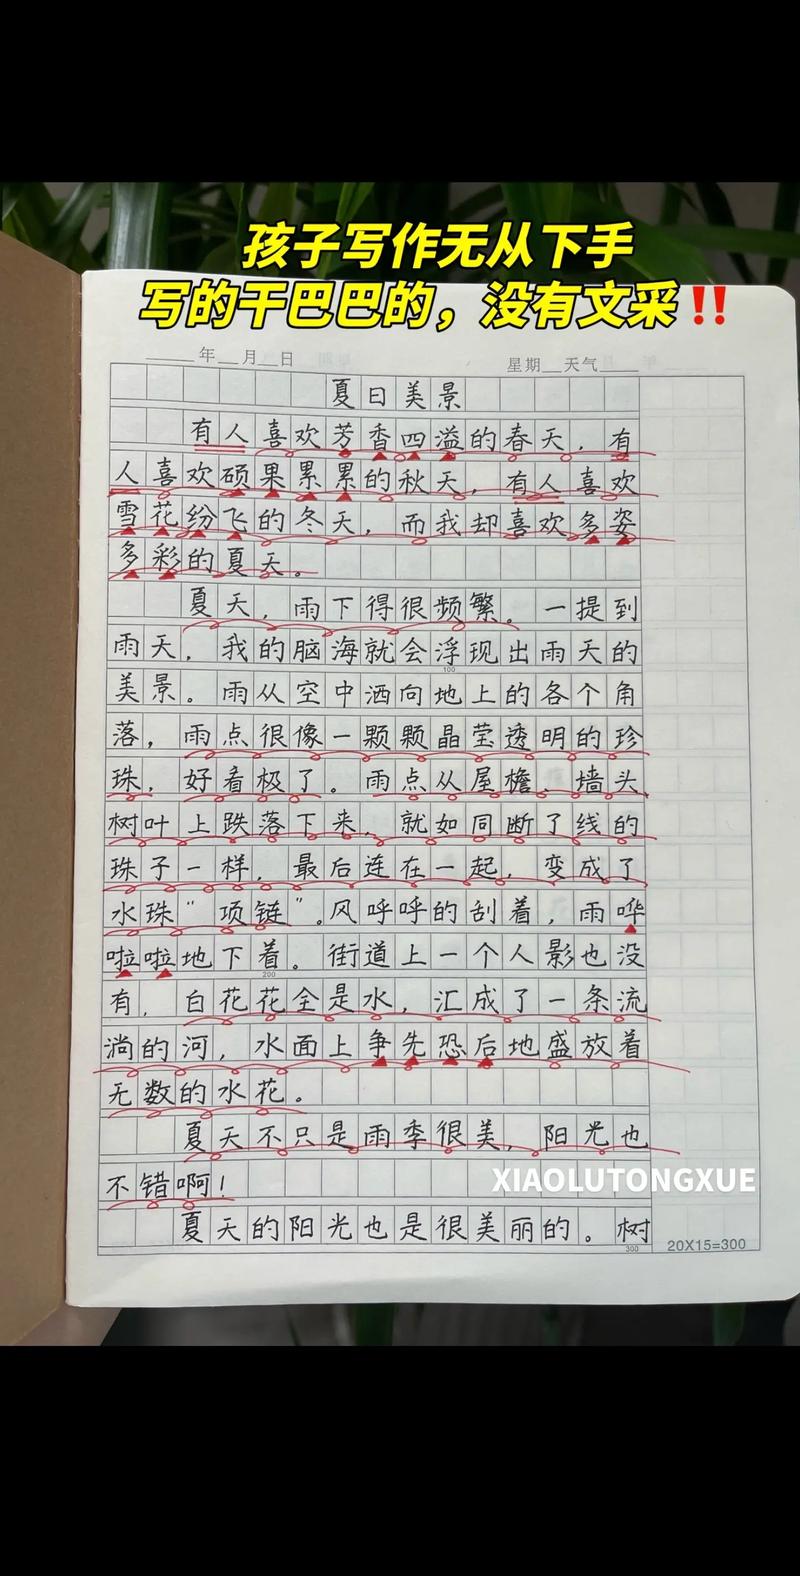 孩子写作无从下手
写的干巴巴的，没有文采‼️
年 月 日 星期 天气
夏日美景
有人喜欢芳香四溢的春天，有
人喜欢硕果累累的秋天，有人喜欢
雪花纷飞的冬天，而我却喜欢多姿
多彩的夏天。
夏天，雨下得很频繁。一提到
雨天，我的脑海就会浮现出雨天的
100
美景。雨从空中洒向地上的各个角
落，雨点很像一颗颗晶莹透明的珍
珠，好看极了。雨点从屋檐、墙头、
树叶上跌落下来，就如同断了线的
珠子一样，最后连在一起，变成了
水珠“项链”。风呼呼的刮着，雨哗
啦啦地下着。街道上一个人影也没
200
有，白花花全是水，汇成了一条流
淌的河，水面上争先恐后地盛放着
无数的水花。
夏天不只是雨季很美，阳光也
不错啊！
XIAOLUTONGXUE
夏天的阳光也是很美丽的。树
300
20X15=300